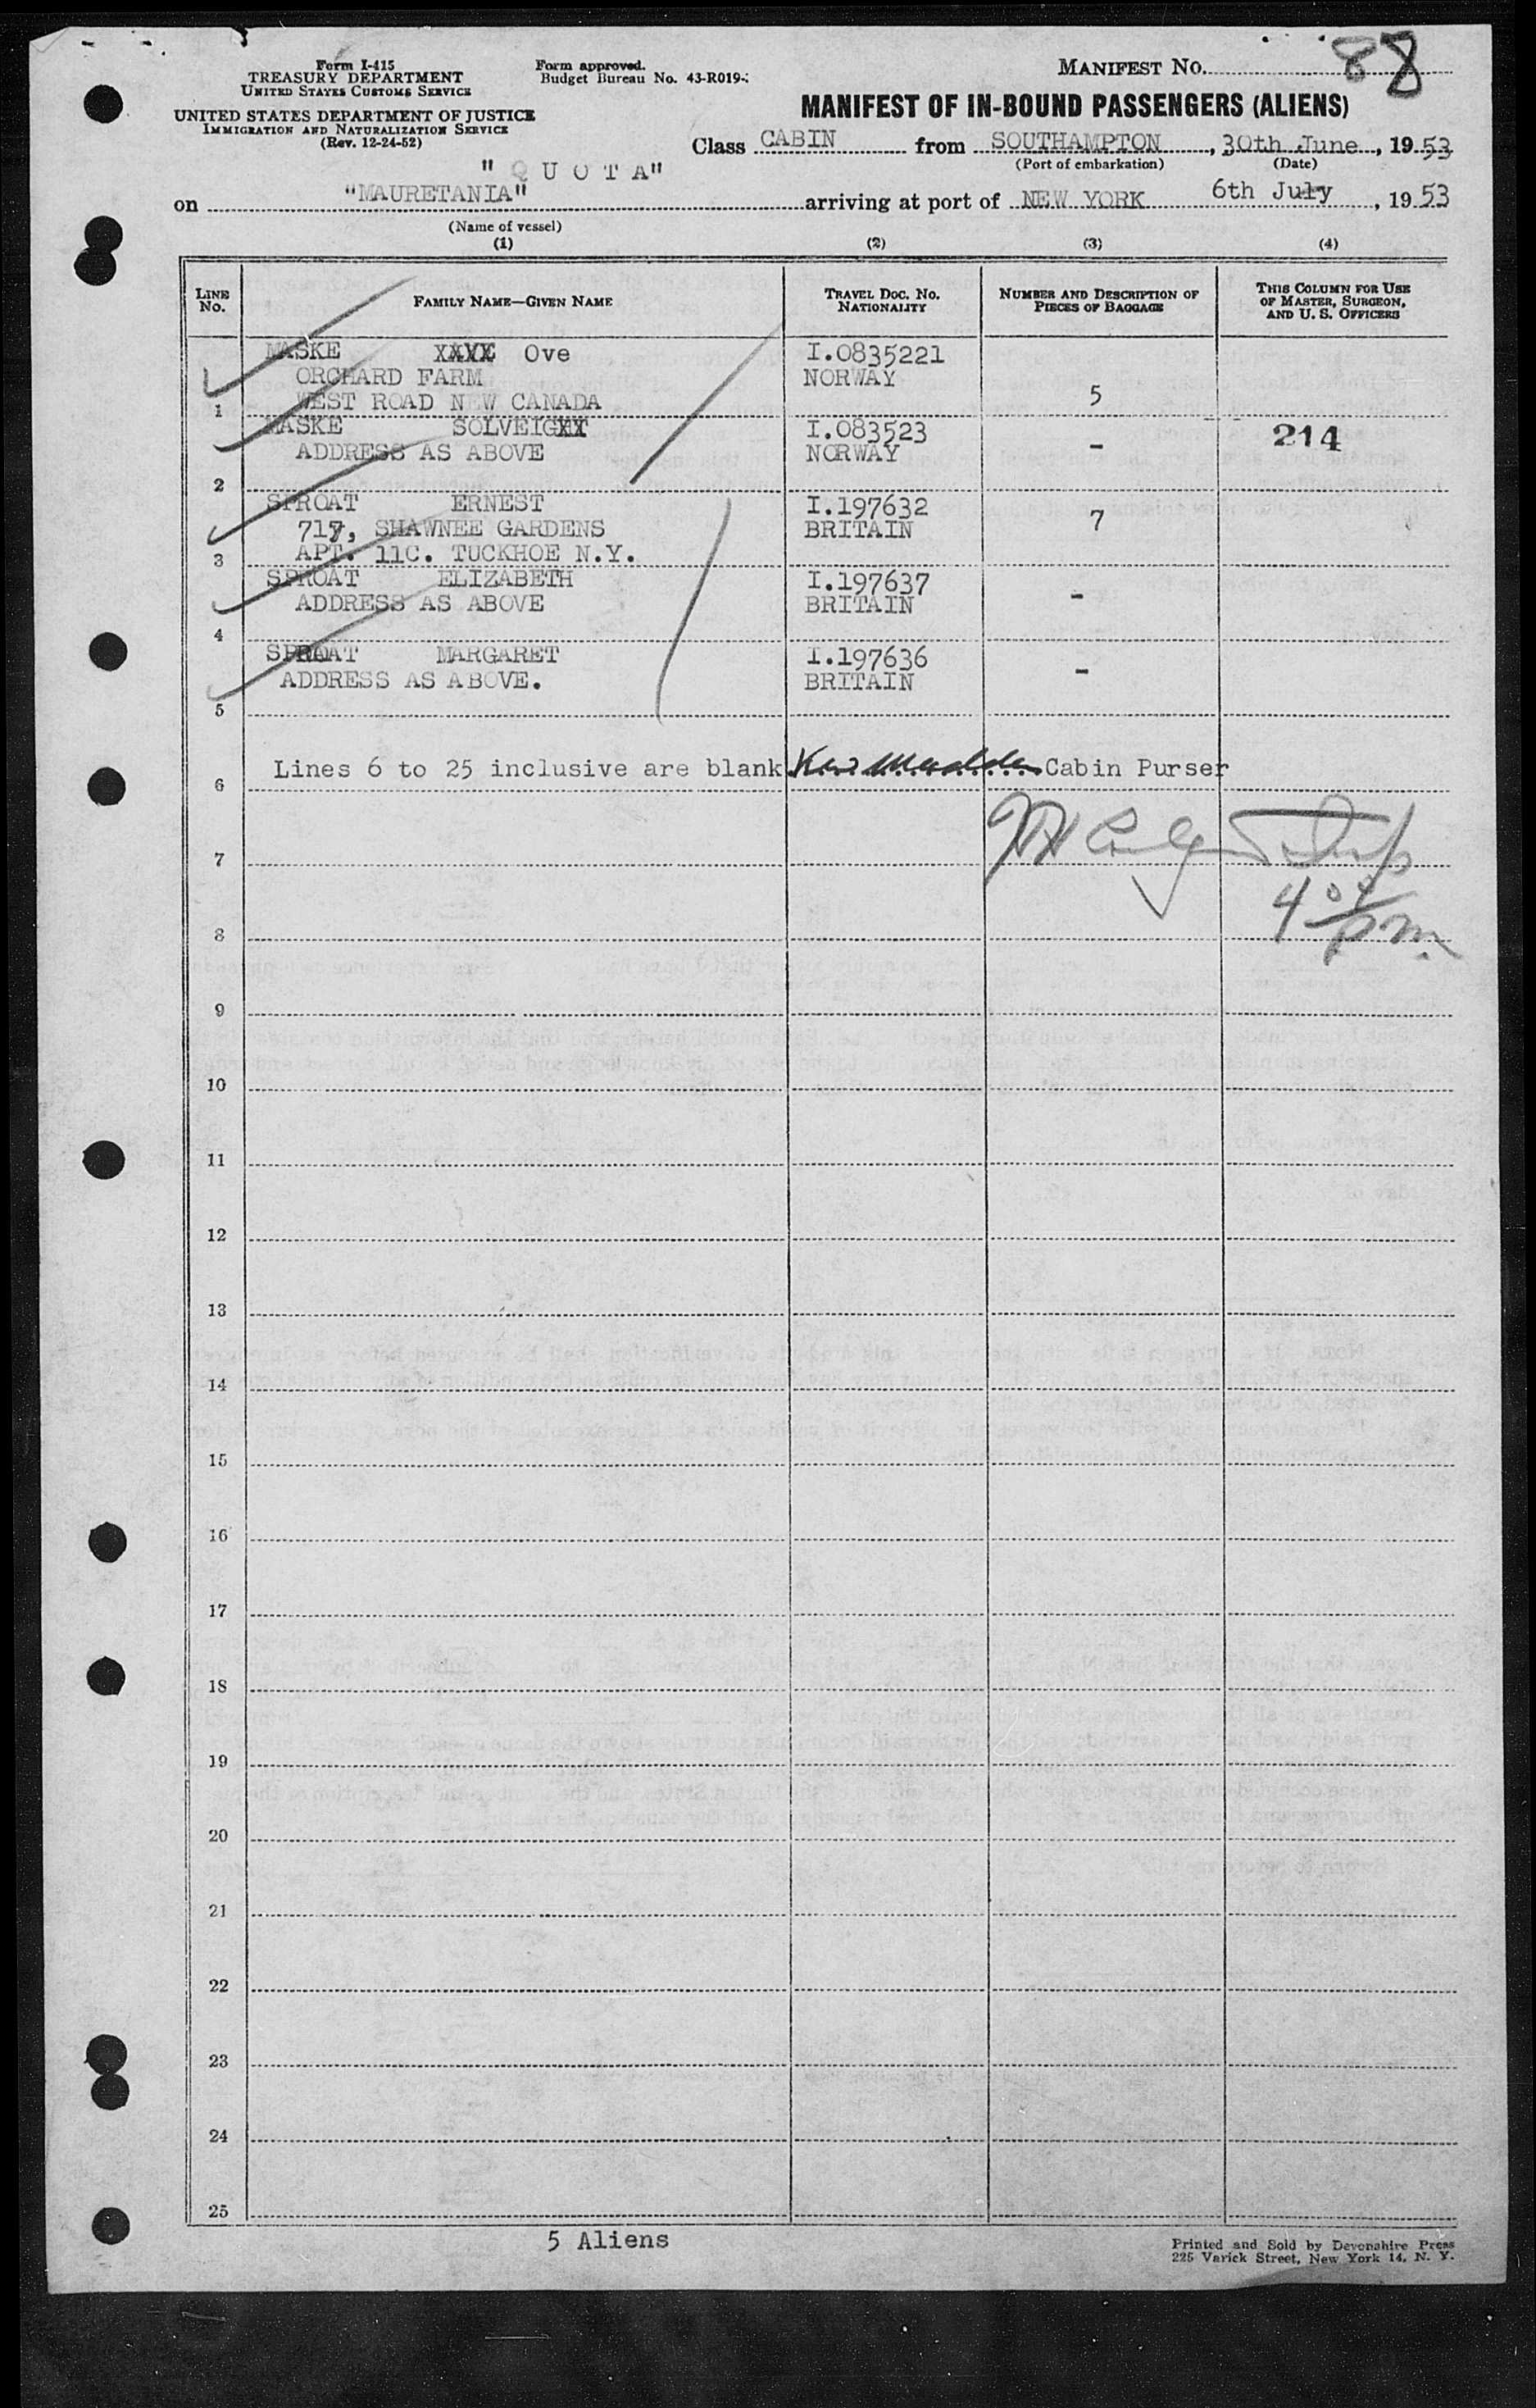 Form I-415
TREASURY DEPARTMENT
UNITED STATES CUSTOMS SERVICE
UNITED STATES DEPARTMENT OF JUSTICE
IMMIGRATION AND NATURALIZATION SERVICE
(Rev. 12-24-52)
Form approved.
Budget Bureau No. 43-R019-
MANIFEST No. 88
MANIFEST OF IN-BOUND PASSENGERS (ALIENS)
Class CABIN from SOUTHAMPTON, 30th June, 1953
(Port of embarkation) (Date)
"QUOTA"
on "MAURETANIA" arriving at port of NEW YORK 6th July, 1953
(Name of vessel)
(1) (2) (3) (4)
LINE No. FAMILY NAME—GIVEN NAME TRAVEL DOC. NO. NATIONALITY NUMBER AND DESCRIPTION OF PIECES OF BAGGAGE THIS COLUMN FOR USE OF MASTER, SURGEON, AND U. S. OFFICERS
MASKE Ove I.0835221
ORCHARD FARM NORWAY
1 WEST ROAD NEW CANADA 5
MASKE SOLVEIG I.083523 214
ADDRESS AS ABOVE NORWAY -
2
SPROAT ERNEST I.197632
717, SHAWNEE GARDENS BRITAIN 7
3 APT. 11C. TUCKHOE N.Y.
SPROAT ELIZABETH I.197637
ADDRESS AS ABOVE BRITAIN -
4
SPROAT MARGARET I.197636
ADDRESS AS ABOVE. BRITAIN -
5
Lines 6 to 25 inclusive are blank Cabin Purser
6
7
4 04 pm
8
9
10
11
12
13
14
15
16
17
18
19
20
21
22
23
24
25
5 Aliens
Printed and Sold by Devonshire Press
225 Varick Street, New York 14, N. Y.